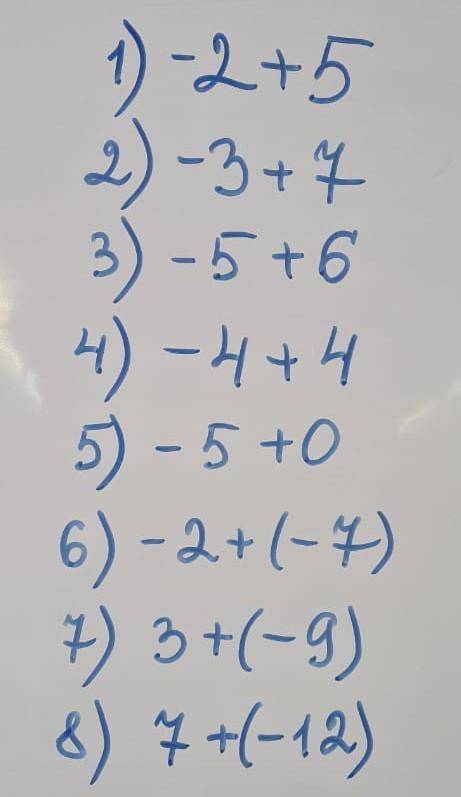 1) -2+5
2) -3+7
3) -5+6
4) -4+4
5) -5+0
6) -2+(-7)
7) 3+(-9)
8) 7+(-12)